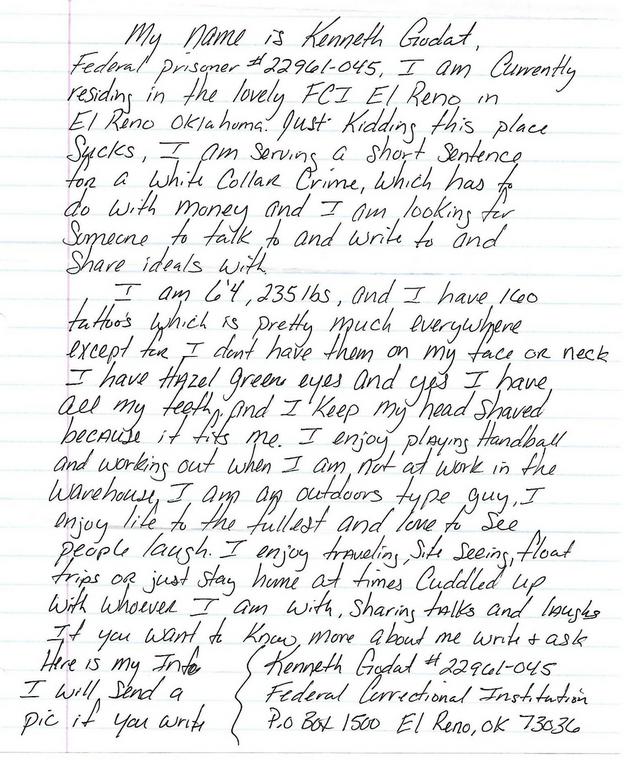 My name is Kenneth Godat,
Federal prisoner #22961-045, I am Currently
residing in the lovely FCI El Reno in
El Reno Oklahoma. Just Kidding this place
Sucks, I am serving a short sentence
for a white Collar Crime, which has to
do with money and I am looking for
Someone to talk to and write to and
Share ideals with
I am 6'4, 235 lbs, and I have, 160
tattoo's which is pretty much everywhere
except for I dont have them on my face or neck
I have Hazel green eyes and yes I have
all my teeth, and I Keep my head Shaved
because it fits me. I enjoy playing Handball
and working out when I am, not at work in the
warehouse, I am an outdoors type guy, I
enjoy life to the fullest and love to See
people laugh. I enjoy traveling, Site Seeing, float
trips or just stay home at times Cuddled up
with whoever I am with, Sharing talks and laughs
If you want to Know more about me write + ask
Here is my Info
I will Send a
pic if you write
Kenneth Godat #22961-045
Federal Correctional Institution
P.O Box 1500 El Reno, OK 73036